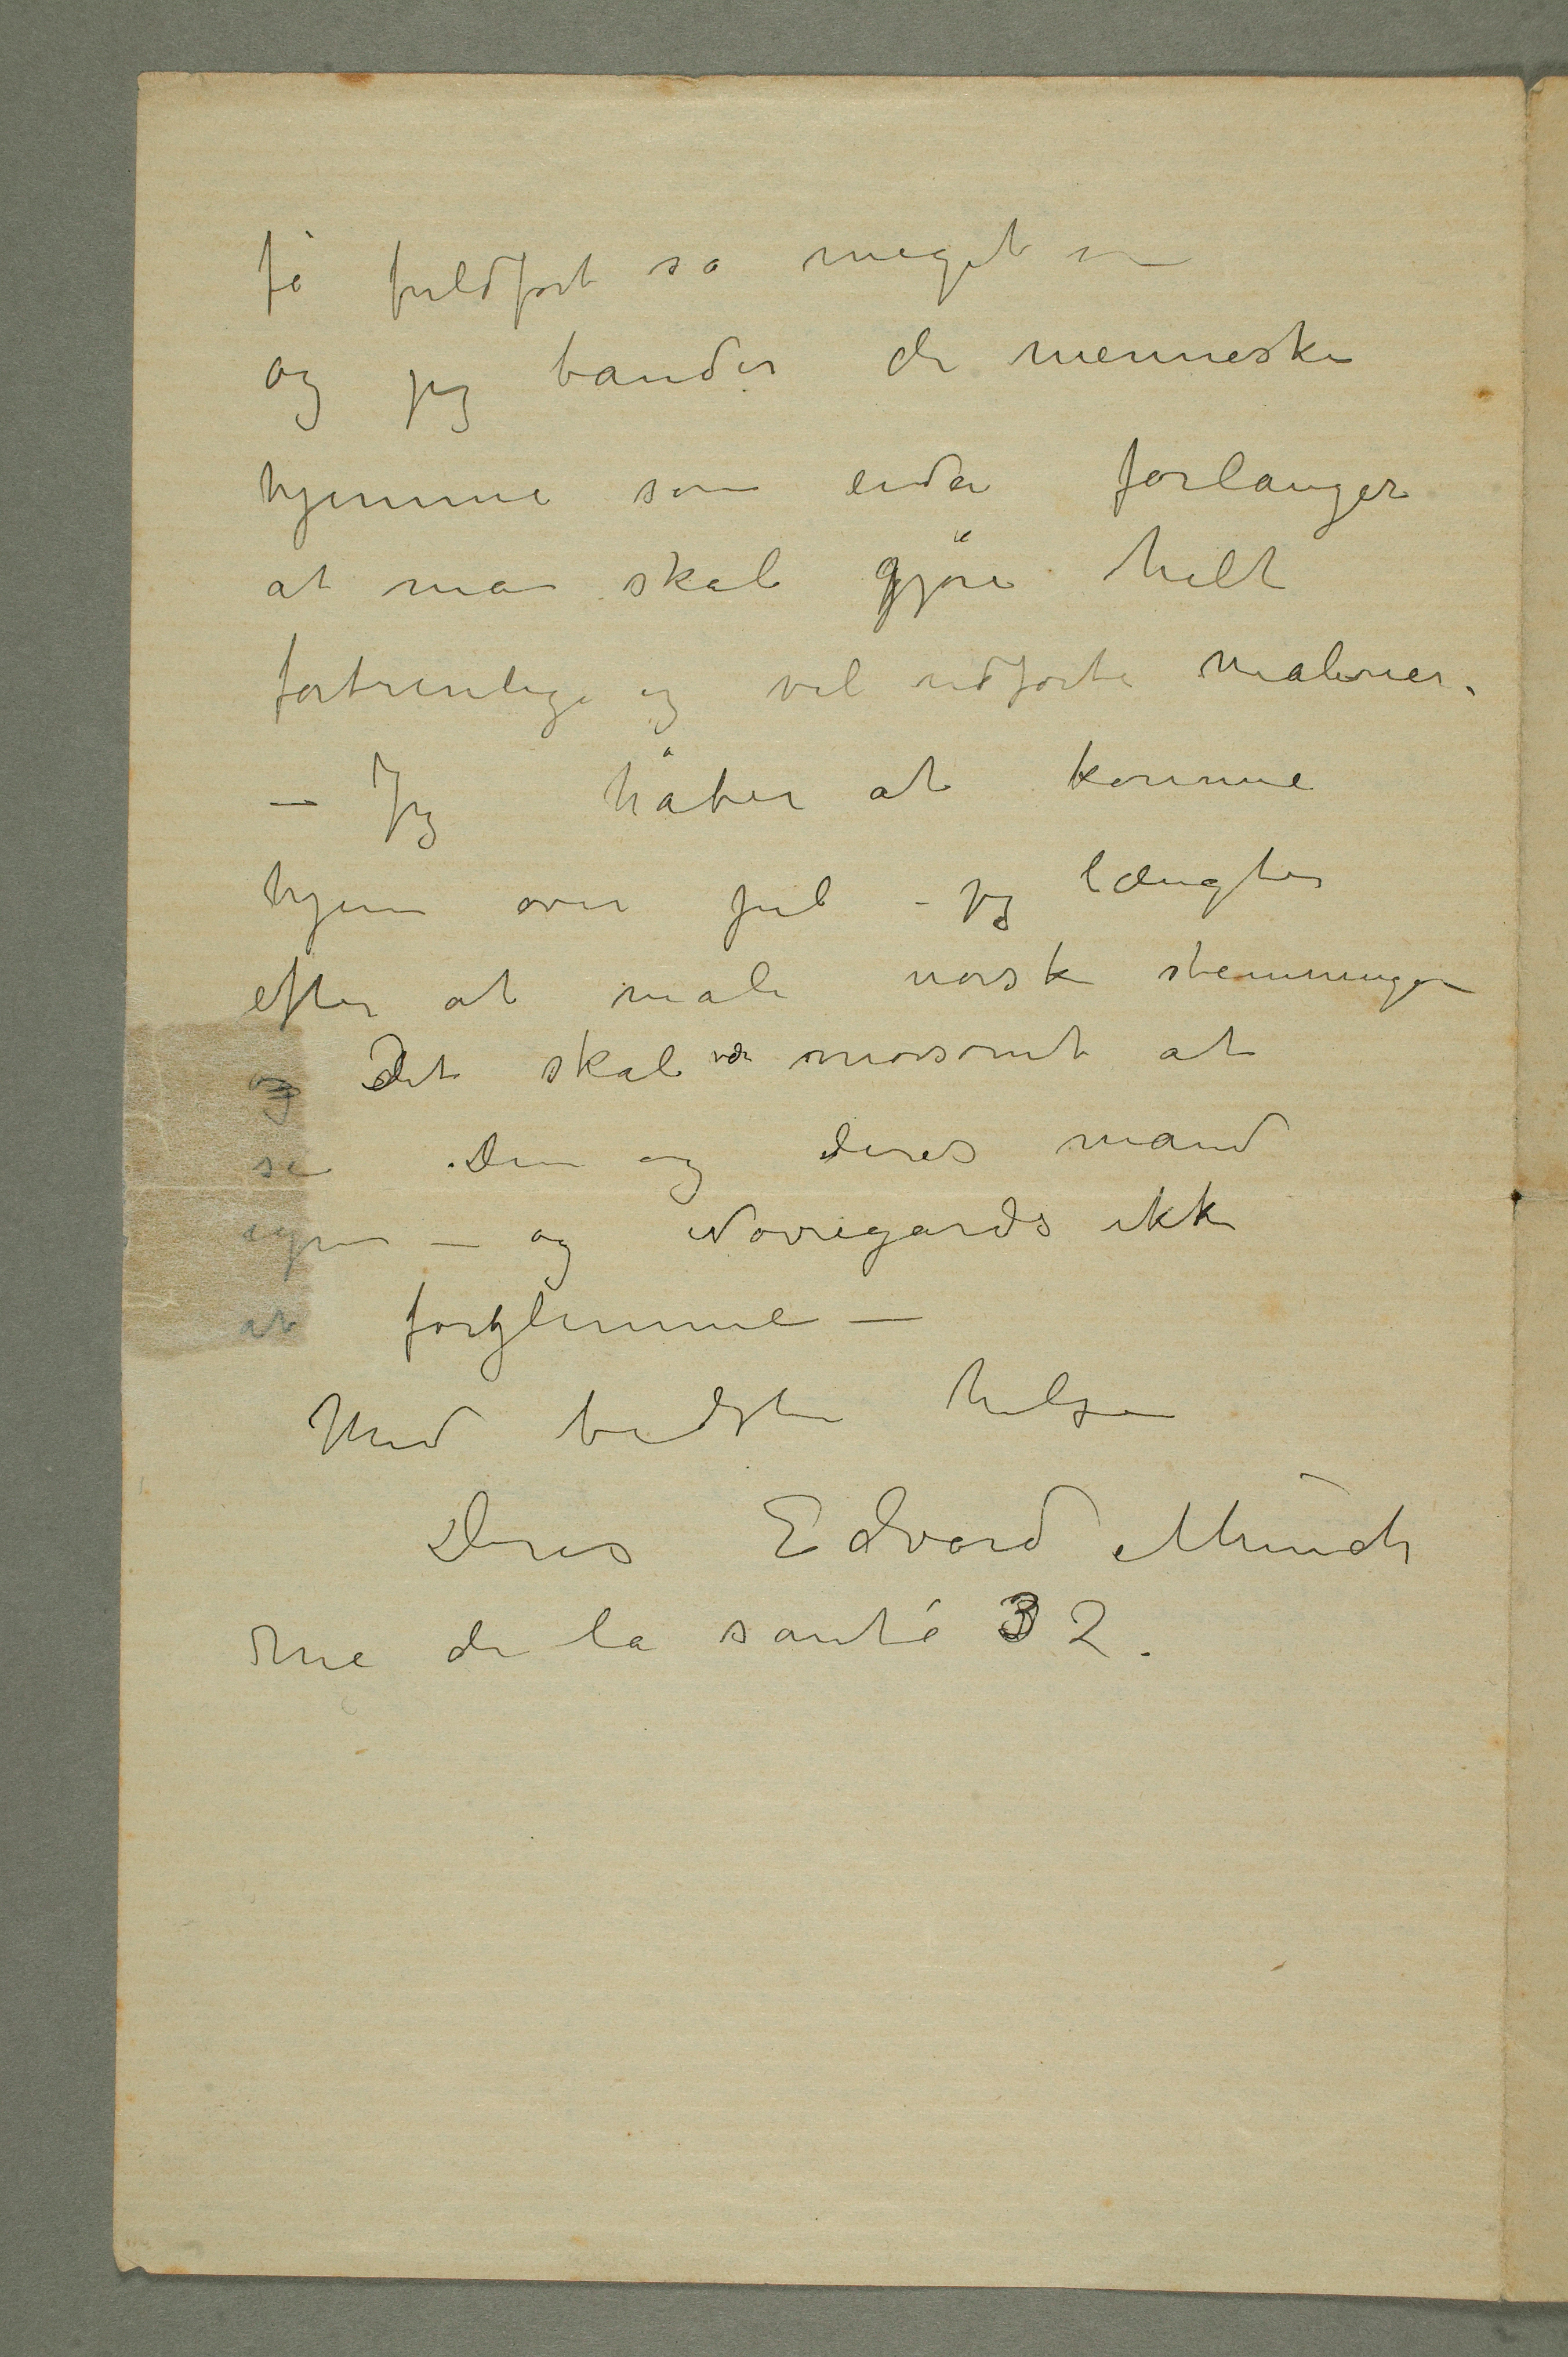 få fuldført så meget –
og jeg bander de mennesker
hjemme som enda forlanger
at man skal gjøre helt
fortrinlige og vel udførte malerier.
– Jeg håber at komme
hjem over jul – jeg længter
efter at male norske stemninger
og Det skal være morsomt at
se Dem og deres mand
igjen – og Nørregårds ikke
at forglemme –
Med bedste hilsen
Deres Edvard Munch
Rue de la santé 32.